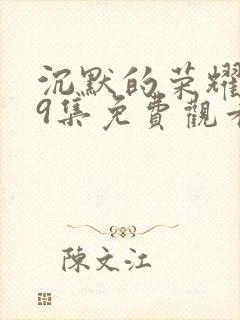 沉默的荣耀
9集免費觀看
陳文江